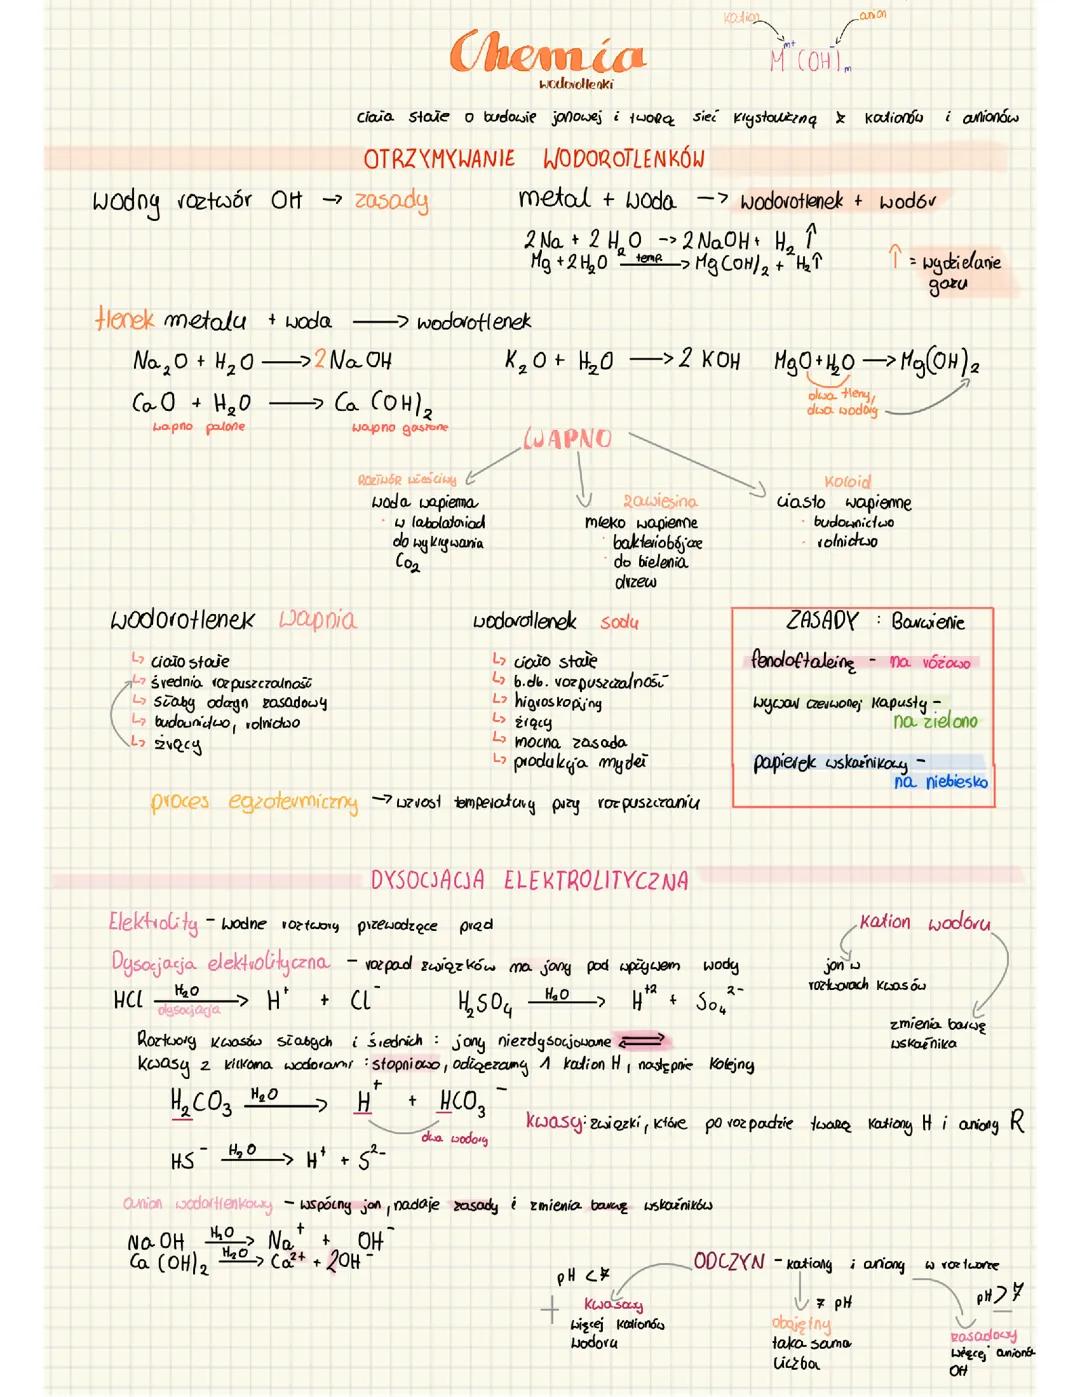 kation
anion
Chemia
M^m+ (OH^-)_m
wodorotlenki
ciała stałe o budowie jonowej i tworzą sieć krystaliczną z kationów i anionów
OTRZYMYWANIE WODOROTLENKÓW
wodny roztwór OH → zasady
metal + woda -> wodorotlenek + wodór
2 Na + 2 H₂O -> 2 NaOH + H₂ ↑
Mg + 2 H₂O temp. -> Mg(OH)₂ + H₂↑
↑ = wydzielanie
gazu
tlenek metalu + woda → wodorotlenek
Na₂O + H₂O → 2 NaOH
K₂O + H₂O → 2 KOH
MgO + H₂O → Mg(OH)₂
dwa tleny,
dwa wodory
CaO + H₂O → Ca(OH)₂
wapno palone
wapno gaszone
WAPNO
ROZTWÓR WŁAŚCIWY
woda wapienna
· w labolatoriach
do wykrywania
CO₂
zawiesina
mleko wapienne
· bakteriobójcze
· do bielenia
drzew
Koloid
ciasto wapienne
· budownictwo
· rolnictwo
wodorotlenek wapnia
↳ ciało stałe
↳ średnia rozpuszczalność
↳ słaby odczyn zasadowy
↳ budownictwo, rolnictwo
↳ żrący
wodorotlenek sodu
↳ ciało stałe
↳ b.db. rozpuszczalność
↳ higroskopijny
↳ żrący
↳ mocna zasada
↳ produkcja mydeł
ZASADY : Barwienie
fendoftaleinę - na różowo
wywar czerwonej kapusty -
na zielono
papierek wskaźnikowy -
na niebiesko
proces egzotermiczny → wzrost temperatury przy rozpuszczaniu
DYSOCJACJA ELEKTROLITYCZNA
Elektrolity - wodne roztwory przewodzące prąd
Dysocjacja elektrolityczna - rozpad związków na jony pod wpływem wody
HCl H₂O → H⁺ + Cl⁻
dysocjacja
H₂SO₄ H₂O → H⁺² + SO₄²⁻
Kation wodoru
jon w
roztworach kwasów
zmienia barwę
wskaźnika
Roztwory kwasów słabych i średnich : jony niezdysocjowane ⇌
Kwasy z kilkoma wodorami : stopniowo, odłączamy 1 kation H, następnie kolejny
H₂CO₃ H₂O → H⁺ + HCO₃⁻
dwa wodory
Kwasy: związki, które po rozpadzie tworzą kationy H i aniony R
HS⁻ H₂O → H⁺ + S²⁻
anion wodortlenkowy - wspólny jon, nadaje zasady i zmienia barwę wskaźników
NaOH H₂O → Na⁺ + OH⁻
Ca(OH)₂ H₂O → Ca²⁺ + 2OH⁻
ODCZYN - kationy i aniony w roztworze
pH < 7
+
Kwasowy
więcej kationów
wodoru
7 pH
obojętny
taka sama
liczba
pH > 7
zasadowy
więcej anionów
OH